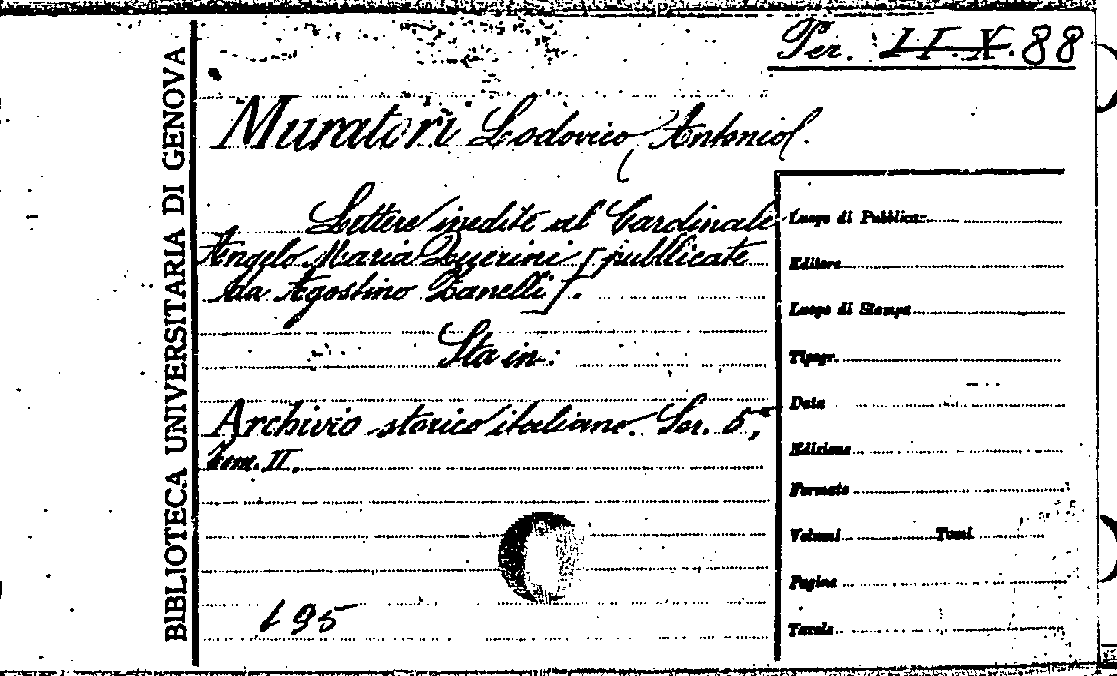 Per. II.X.88
BIBLIOTECA UNIVERSITARIA DI GENOVA
Muratori Lodovico Antonio.
Lettere inedite al Cardinale
Angelo Maria Querini [pubblicate
da Agostino Zanelli].
Sta in:
Archivio storico italiano. Ser. 5,
tom. II.
195
Luogo di Pubblicaz.
Editore
Luogo di Stampa
Tipogr.
Data
Edizione
Formato
Volumi Tomi
Pagine
Tavole